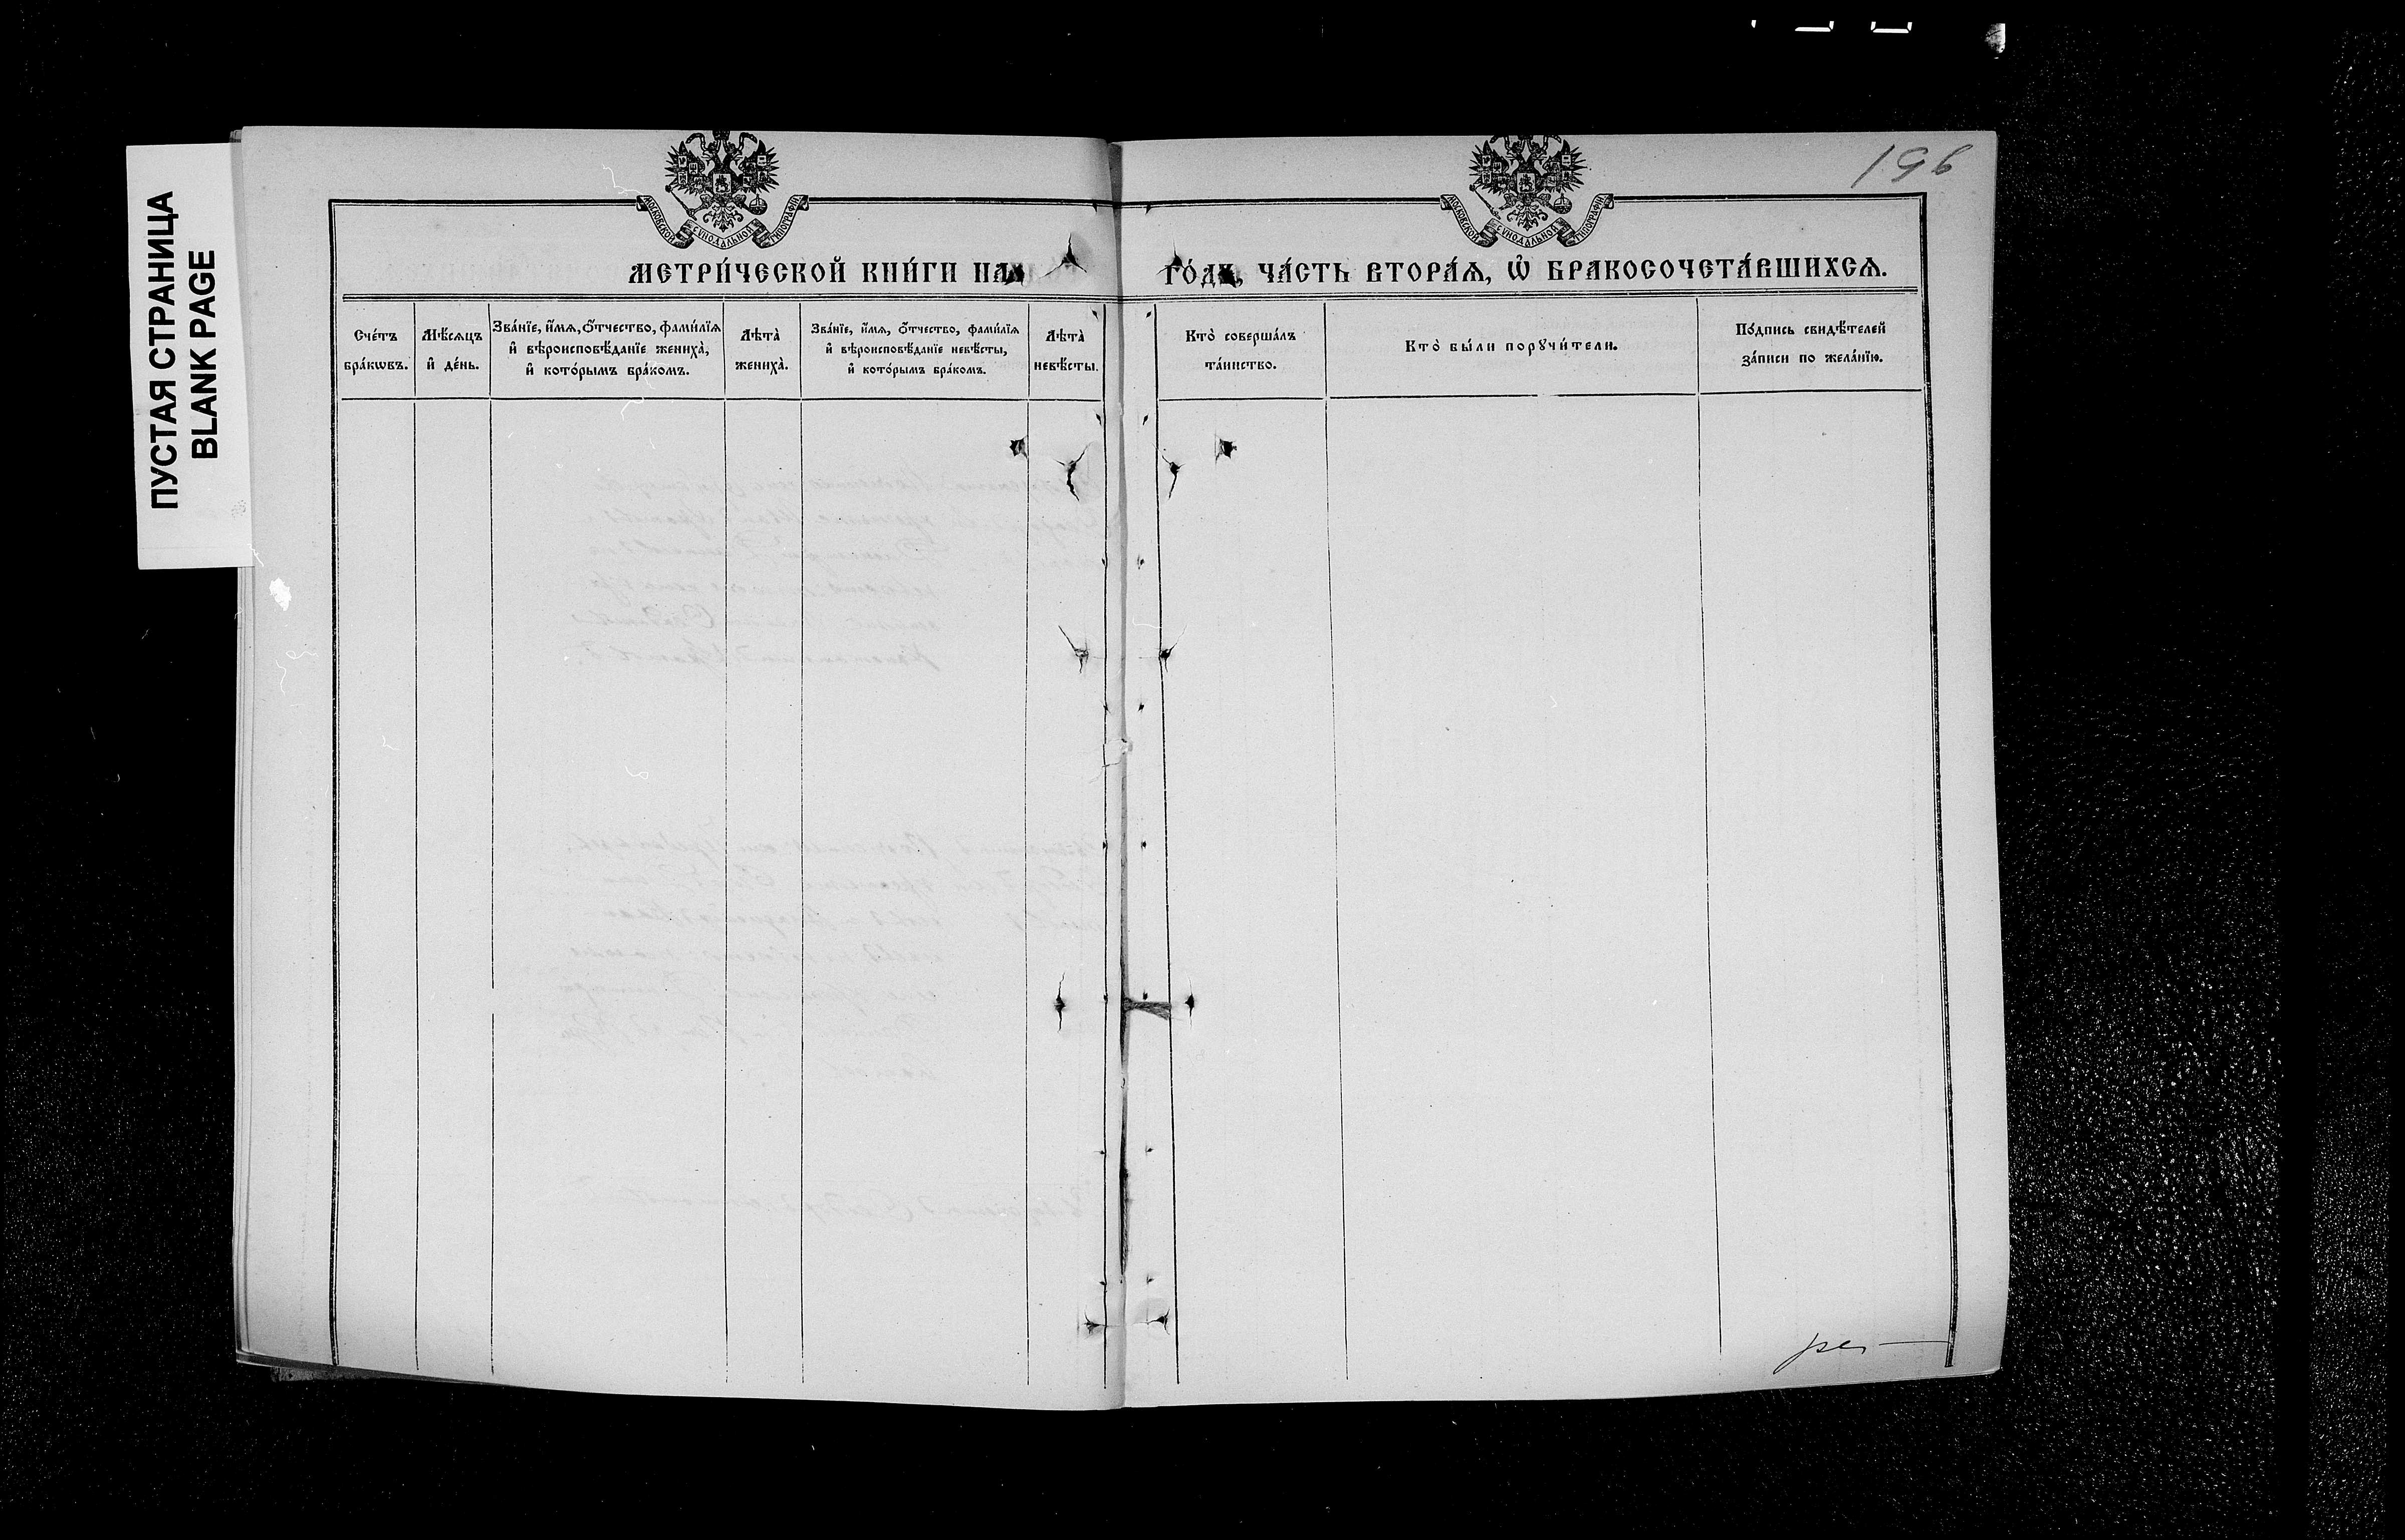 ПУСТАЯ СТРАНИЦА
BLANK PAGE
196
МОСКОВСКОЙ СѴНОДАЛЬНОЙ ТИПОГРАФІИ
МОСКОВСКОЙ СѴНОДАЛЬНОЙ ТИПОГРАФІИ
МЕТРИ́ЧЕСКОЙ КНИ́ГИ НА
ГО́ДЪ, ЧА́СТЬ ВТОРА́Ѧ, Ѽ БРАКОСОЧЕТА́ВШИХСѦ.
Сче́тъ
бра́кѡвъ.
Мѣ́сѧцъ
и҆ де́нь.
Зва́нїе, и҆́мѧ, ѻ҆́тчество, фами́лїѧ
и҆ вѣроисповѣ́данїе жениха̀,
и҆ кото́рымъ бра́комъ.
Лѣта̀
жениха̀.
Зва́нїе, и҆́мѧ, ѻ҆́тчество, фами́лїѧ
и҆ вѣроисповѣ́данїе невѣ́сты,
и҆ кото́рымъ бра́комъ.
Лѣта̀
невѣ́сты.
Кто̀ соверша́лъ
та́инство.
Кто̀ бы́ли порꙋчи́тели.
По́дпись свидѣ́телей
за́писи по жела́нїю.